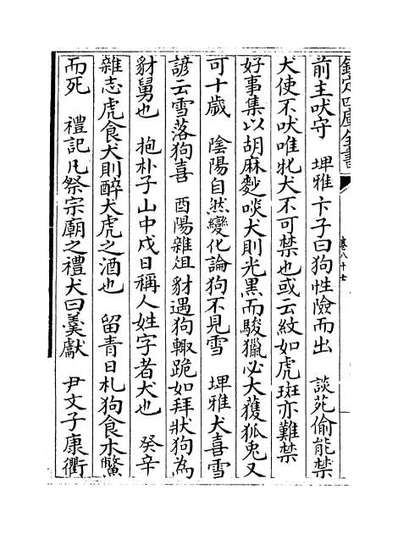 欽定四庫全書
卷八十七
前主吠守　埤雅卞子曰狗性險而出　談苑偷能禁
犬使不吠唯牝犬不可禁也或云紋如虎斑亦難禁
好事集以胡麻麨啖犬則光黑而駿獵必大獲狐兔又
可十歲　陰陽自然變化論狗不見雪　埤雅犬喜雪
諺云雪落狗喜　酉陽雜俎豺遇狗輙跪如拜狀狗為
豺舅也　抱朴子山中戌日稱人姓字者犬也　癸辛
雜志虎食犬則醉犬虎之酒也　留青日札狗食木鱉
而死　禮記凡祭宗廟之禮犬曰羹獻　尹文子康衢